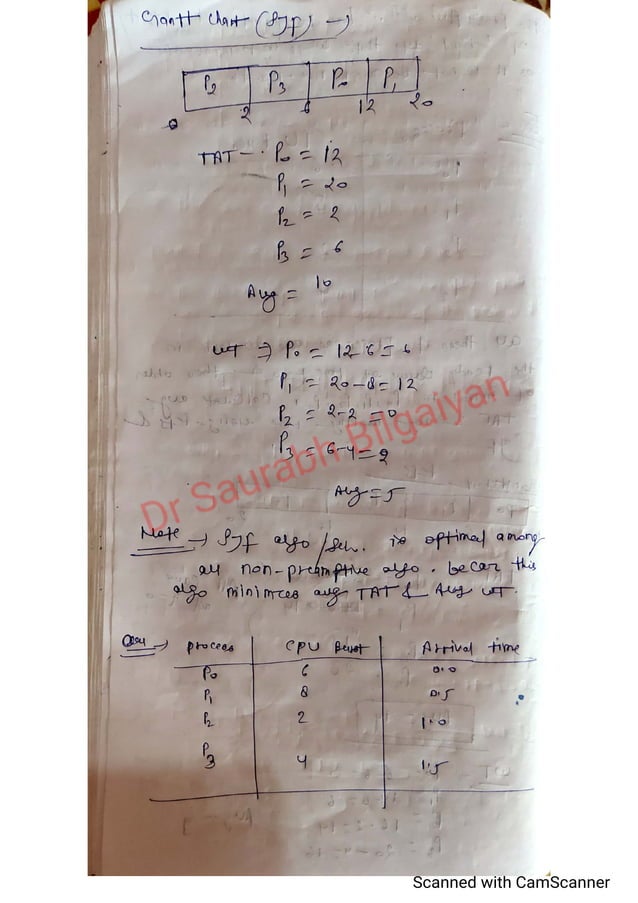 Gantt Chart (SJF) →
P2 P3 P0 P1
0 2 6 12 20
TAT — P0 = 12
P1 = 20
P2 = 2
P3 = 6
Avg = 10
WT ⇒ P0 = 12-6 = 6
P1 = 20-8 = 12
P2 = 2-2 = 0
P3 = 6-4 = 2
Avg = 5
Dr Saurabh Bilgaiyan
Note → SJF algo/Sch. is optimal among
all non-preemptive algo. becaz this
algo minimizes avg TAT & Avg WT.
Ques → Process CPU Burst Arrival time
P0 6 0.0
P1 8 0.5
P2 2 1.0
P3 4 1.5
Scanned with CamScanner